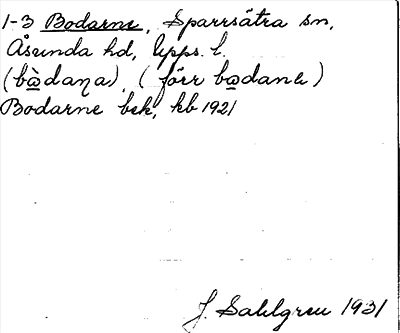 1-3 Bodarne, Sparrsätra sn,
Åsunda hd, Upps. l.
(bò̲daṇa), (förr bo̲danɛ)
Bodarne bek, kb 1921
J. Sahlgren 1931